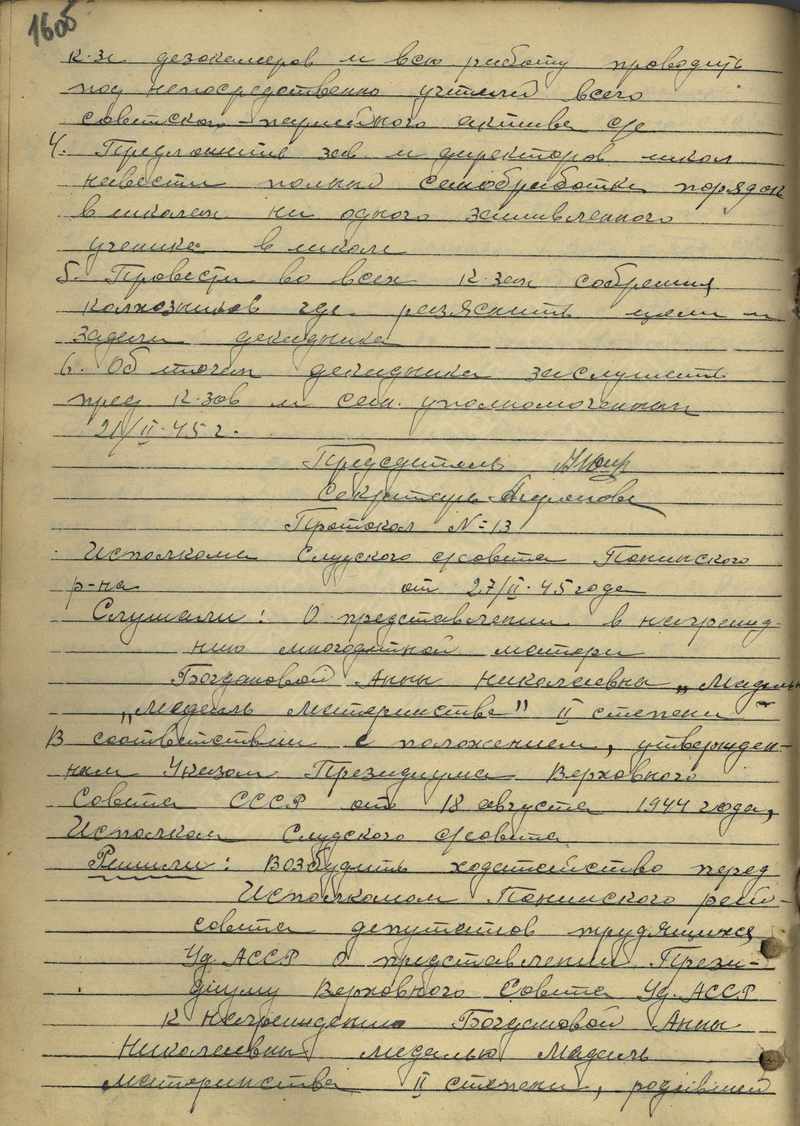 160б
к-зе дезокамеров и всю работу проводить
под непосредственно учителей всего
советско-партийного актива с/с
4. Предложить зав и директоров школ
навести полный санобработки порядок
в школах ни одного завшивленного
ученика в школе
5. Провести во всех к-зах собрания
колхозников где разяснить цели и
задачи декадника
6. Об итогах декадника заслушать
пред к-зов и сан. уполномоченных
21/II-45 г.
Председатель
Секретарь
Протокол №-13
Исполкома Слудского с/совета Понинского
р-на от 27/II-45 года
Слушали: О представлении в награжд-
нию многодетной матери
Богдановой Анны Николаевны „Медаль
„Медаль Материнства" II степени
В соответствии с положением, утвержден-
ным Указом Президиума Верховного
Совета СССР от 18 августа 1944 года,
Исполком Слудского с/совета
Решили: Возбудить ходатайство перед
Исполкомом Понинского рай-
совета депутатов трудящихся
Уд.АССР о представлении Прези-
диуму Верховного Совета Уд.АССР
к награждению Богдановой Анны
Николаевны медалью Медаль
материнства II степени, родившей